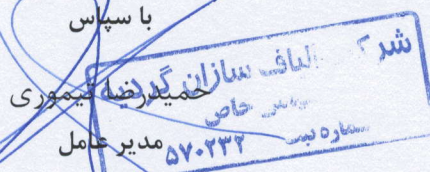 با سپاس
حمیدرضا تیموری
مدیر عامل
شرکت الیاف سازان گردینه
خاص
شماره ثبت ۵۷۰۲۳۲